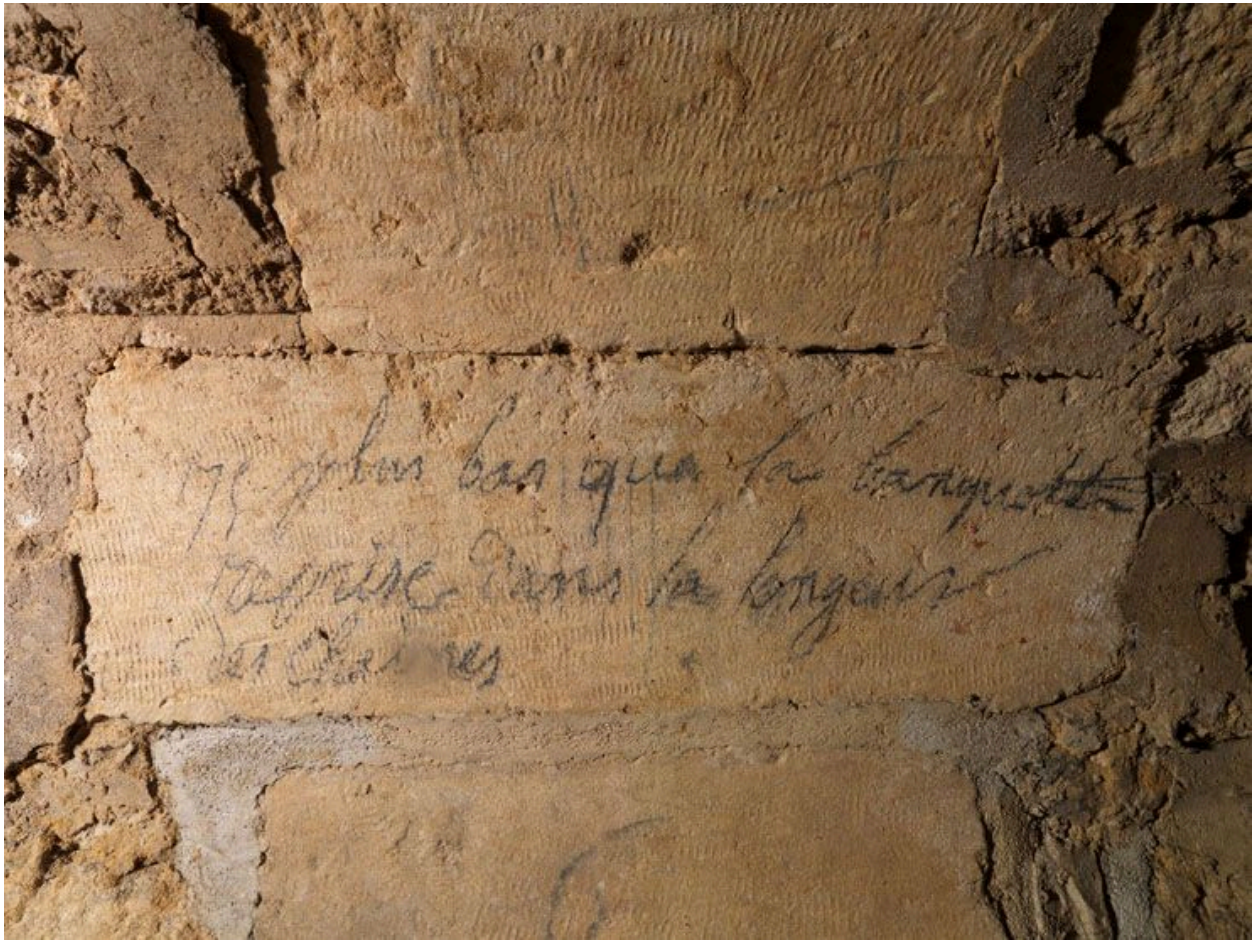 plus bas que la banquette
reprise dans la longeur
des